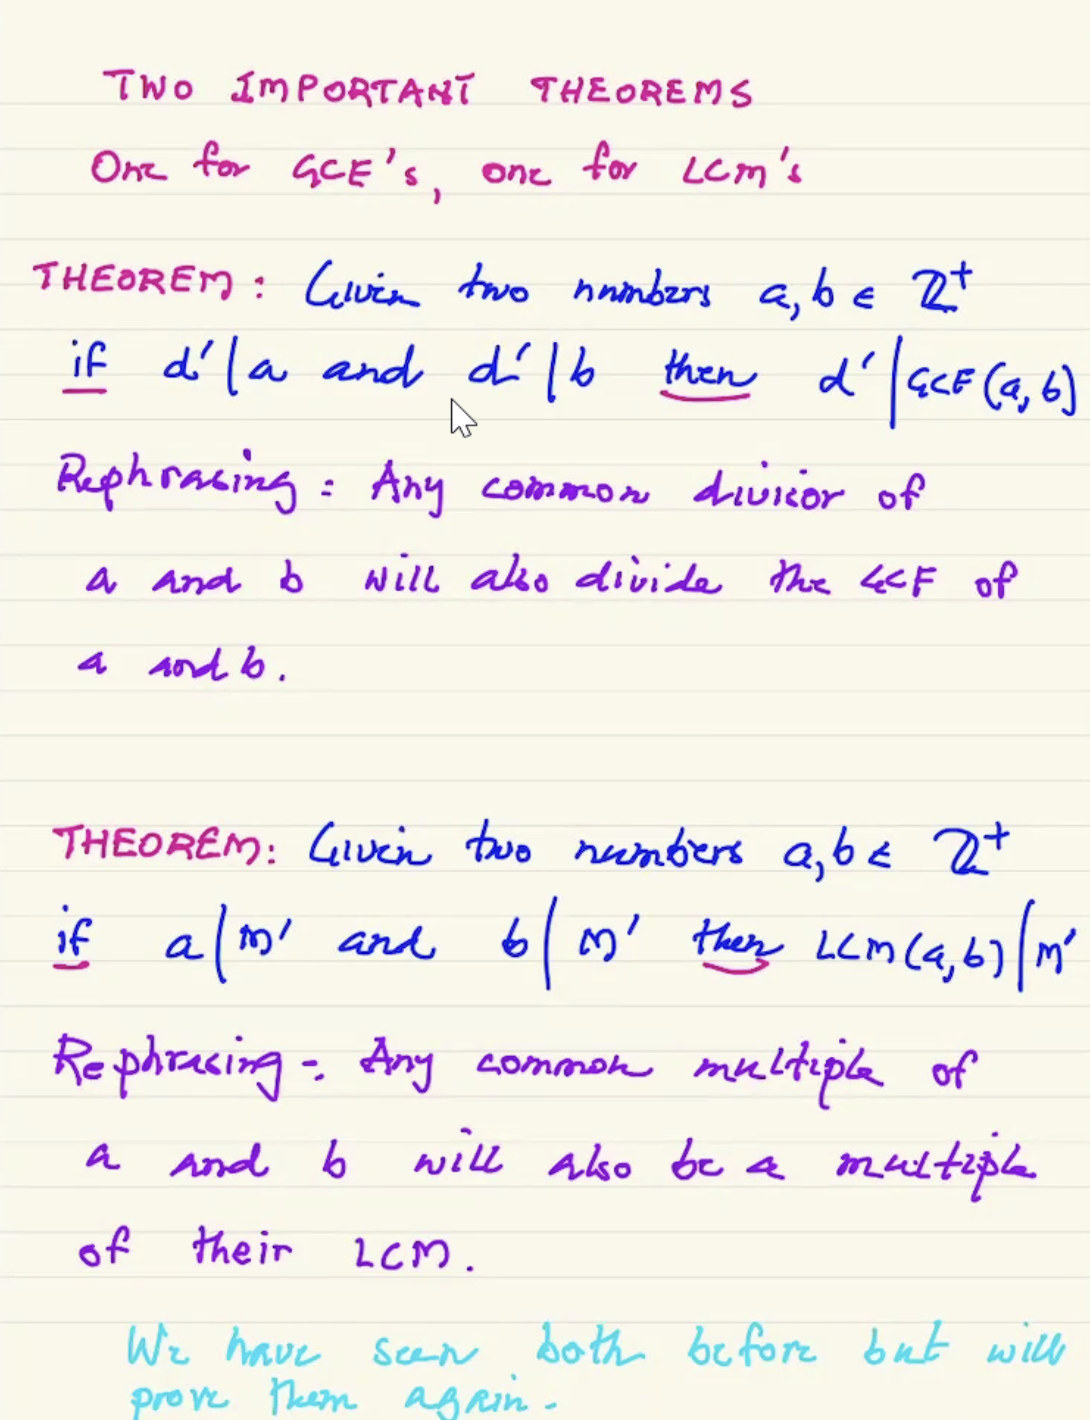 TWO IMPORTANT THEOREMS
One for GCF's, one for LCM's
THEOREM: Given two numbers a, b ∈ ℤ⁺
if d' | a and d' | b then d' | GCF(a, b)
Rephrasing: Any common divisor of
a and b will also divide the GCF of
a and b.
THEOREM: Given two numbers a, b ∈ ℤ⁺
if a | m' and b | m' then LCM(a, b) | m'
Rephrasing: Any common multiple of
a and b will also be a multiple
of their LCM.
We have seen both before but will
prove them again.